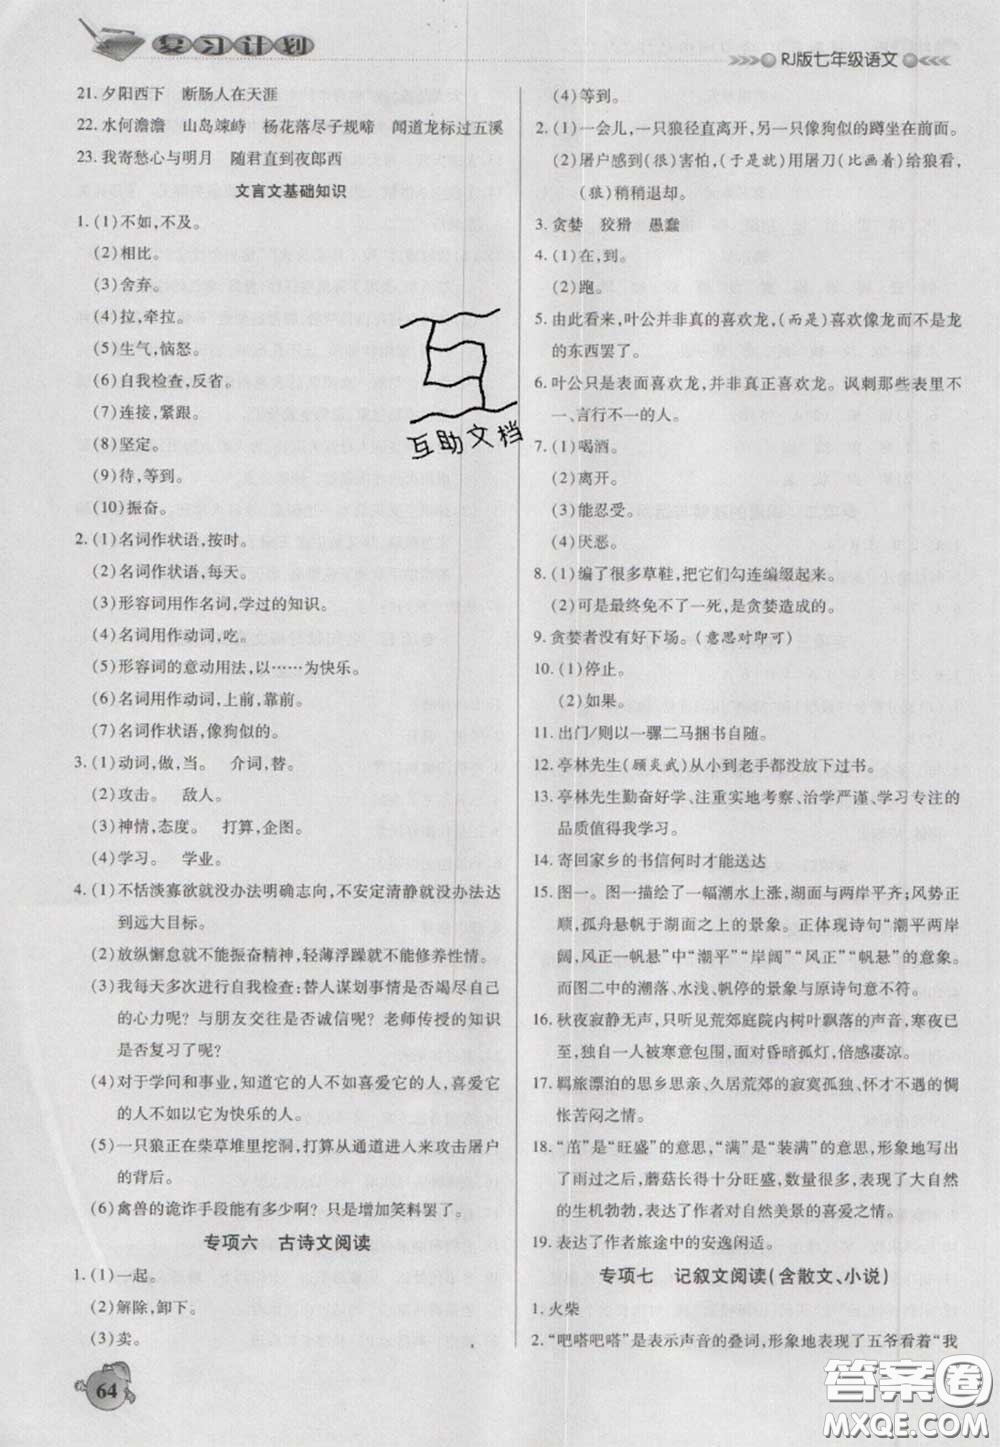 复习计划
RJ版七年级语文
21. 夕阳西下　断肠人在天涯
22. 水何澹澹　山岛竦峙　杨花落尽子规啼　闻道龙标过五溪
23. 我寄愁心与明月　随君直到夜郎西
文言文基础知识
1. (1)不如,不及。
(2)相比。
(3)舍弃。
(4)拉,牵拉。
(5)生气,恼怒。
(6)自我检查,反省。
(7)连接,紧跟。
(8)坚定。
(9)待,等到。
(10)振奋。
2. (1)名词作状语,按时。
(2)名词作状语,每天。
(3)形容词用作名词,学过的知识。
(4)名词用作动词,吃。
(5)形容词的意动用法,以……为快乐。
(6)名词用作动词,上前,靠前。
(7)名词作状语,像狗似的。
3. (1)动词,做,当。　介词,替。
(2)攻击。　敌人。
(3)神情,态度。　打算,企图。
(4)学习。　学业。
4. (1)不恬淡寡欲就没办法明确志向,不安定清静就没办法达
到远大目标。
(2)放纵懈怠就不能振奋精神,轻薄浮躁就不能修养性情。
(3)我每天多次进行自我检查:替人谋划事情是否竭尽自己
的心力呢? 与朋友交往是否诚信呢? 老师传授的知识
是否复习了呢?
(4)对于学问和事业,知道它的人不如喜爱它的人,喜爱它
的人不如以它为快乐的人。
(5)一只狼正在柴草堆里挖洞,打算从通道进入来攻击屠户
的背后。
(6)禽兽的诡诈手段能有多少啊? 只是增加笑料罢了。
专项六　古诗文阅读
1. (1)一起。
(2)解除,卸下。
(3)卖。
(4)等到。
2. (1)一会儿,一只狼径直离开,另一只像狗似的蹲坐在前面。
(2)屠户感到(很)害怕,(于是就)用屠刀(比画着)给狼看,
(狼)稍稍退却。
3. 贪婪　狡猾　愚蠢
4. (1)在,到。
(2)跑。
5. 由此看来,叶公并非真的喜欢龙,(而是)喜欢像龙而不是龙
的东西罢了。
6. 叶公只是表面喜欢龙,并非真正喜欢龙。讽刺那些表里不
一、言行不一的人。
7. (1)喝酒。
(2)离开。
(3)能忍受。
(4)厌恶。
8. (1)编了很多草鞋,把它们勾连编缀起来。
(2)可是最终免不了一死,是贪婪造成的。
9. 贪婪者没有好下场。(意思对即可)
10. (1)停止。
(2)如果。
11. 出门/则以一骡二马捆书自随。
12. 亭林先生(顾炎武)从小到老手都没放下过书。
13. 亭林先生勤奋好学、注重实地考察、治学严谨、学习专注的
品质值得我学习。
14. 寄回家乡的书信何时才能送达
15. 图一。图一描绘了一幅潮水上涨,湖面与两岸平齐;风势正
顺,孤舟悬帆于湖面之上的景象。正体现诗句“潮平两岸
阔,风正一帆悬”中“潮平”“岸阔”“风正”“帆悬”的意象。
而图二中的潮落、水浅、帆停的景象与原诗句意不符。
16. 秋夜寂静无声,只听见荒郊庭院内树叶飘落的声音,寒夜已
至,独自一人被寒意包围,面对昏暗孤灯,倍感凄凉。
17. 羁旅漂泊的思乡思亲、久居荒郊的寂寞孤独、怀才不遇的惆
怅苦闷之情。
18. “茁”是“旺盛”的意思,“满”是“装满”的意思,形象地写出
了雨过之后,蘑菇长得十分旺盛,数量很多,表现了大自然
的生机勃勃,表达了作者对自然美景的喜爱之情。
19. 表达了作者旅途中的安逸闲适。
专项七　记叙文阅读(含散文、小说)
1. 火柴
2. “吧嗒吧嗒”是表示声音的叠词,形象地表现了五爷看着“我
64
互助文档
答案卷
MXQE.COM